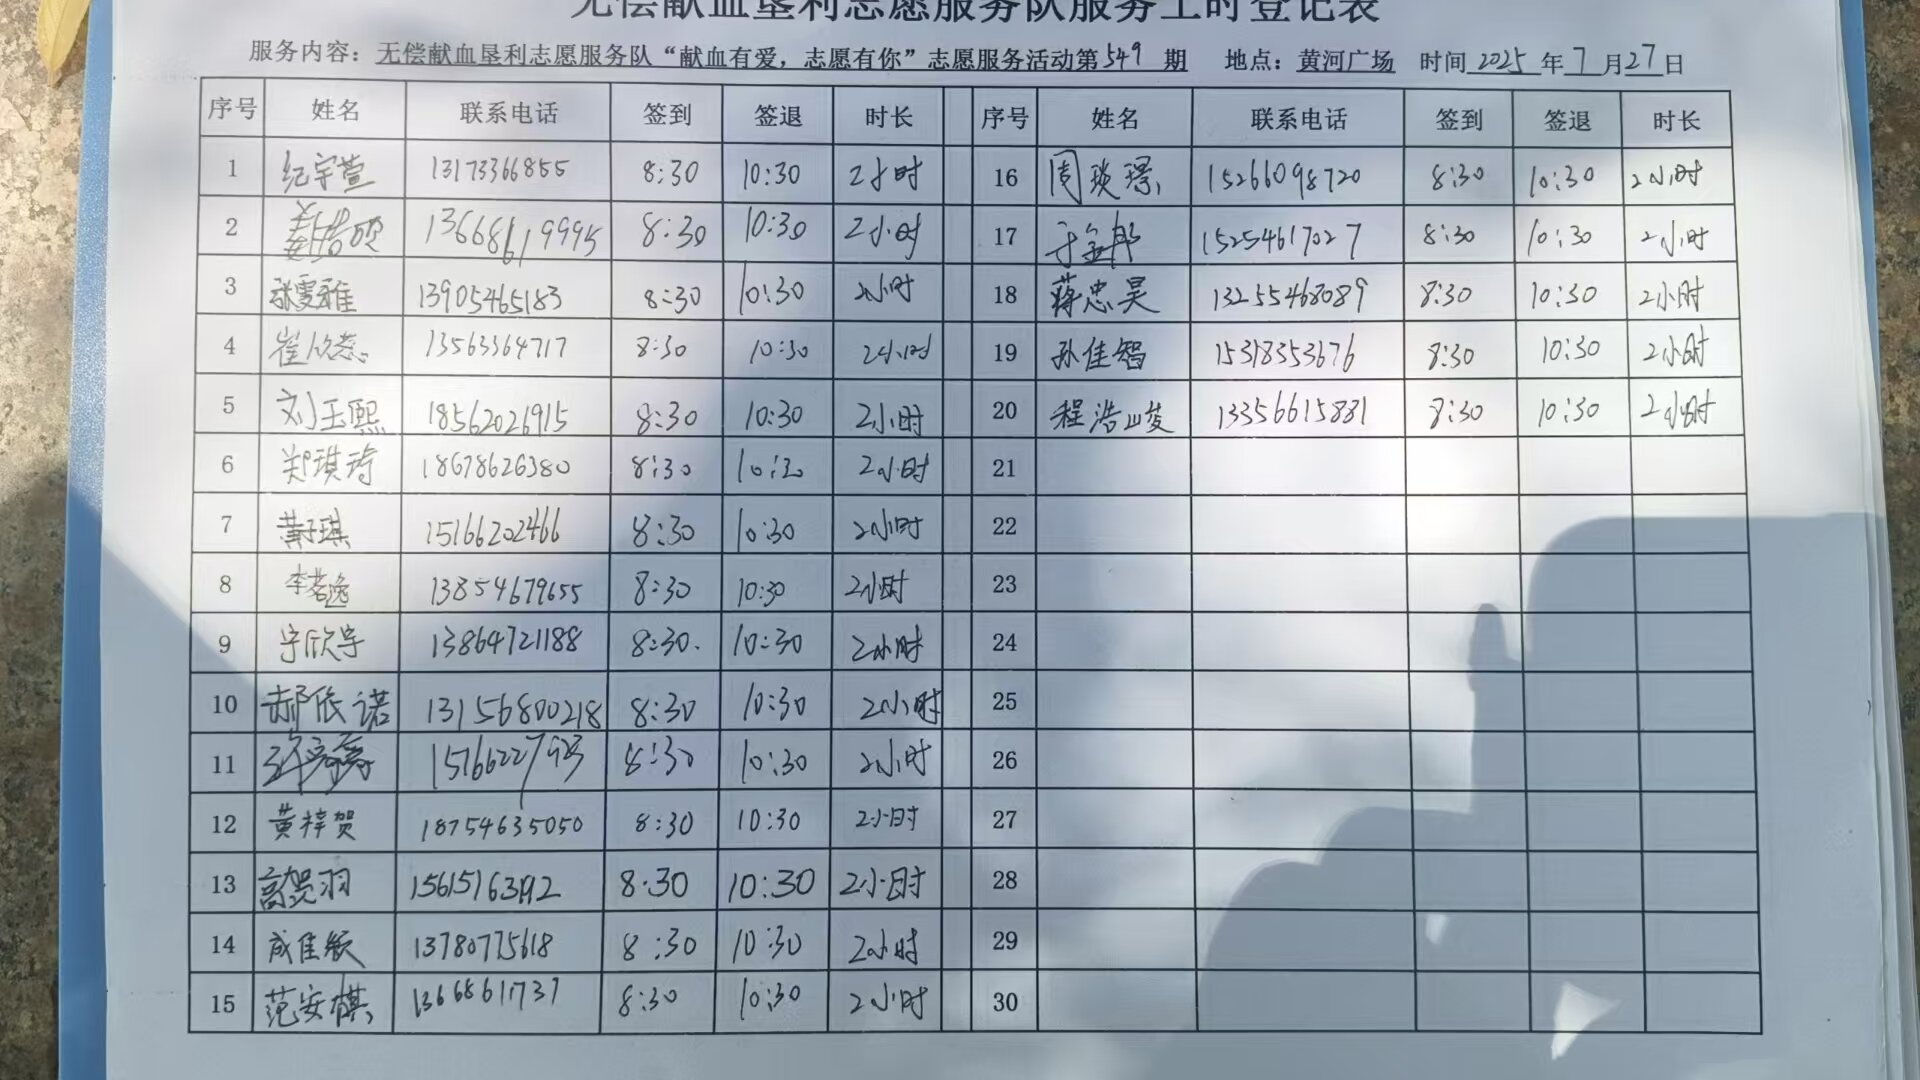 无偿献血垦利志愿服务队服务工时登记表
服务内容：无偿献血垦利志愿服务队“献血有爱，志愿有你”志愿服务活动第549期 地点：黄河广场 时间2025年7月27日
序号 姓名 联系电话 签到 签退 时长 序号 姓名 联系电话 签到 签退 时长
1 纪宇萱 13173366855 8:30 10:30 2小时 16 周琰璟 15266098720 8:30 10:30 2小时
2 姜皓硕 13668619995 8:30 10:30 2小时 17 于金彤 15254617027 8:30 10:30 2小时
3 张雯雅 13905465183 8:30 10:30 2小时 18 蒋忠昊 13255468089 8:30 10:30 2小时
4 崔欣蕊 13563364717 8:30 10:30 2小时 19 孙佳智 15318353676 8:30 10:30 2小时
5 刘玉熙 18562026915 8:30 10:30 2小时 20 程浩峻 13356615881 8:30 10:30 2小时
6 郑琪琦 18678626380 8:30 10:30 2小时 21
7 黄子琪 15166202466 8:30 10:30 2小时 22
8 李若逸 13854679655 8:30 10:30 2小时 23
9 宇欣宇 13864721188 8:30 10:30 2小时 24
10 郝依诺 13156800218 8:30 10:30 2小时 25
11 8:30 10:30 2小时 26
12 黄梓贺 18754635050 8:30 10:30 2小时 27
13 高贺羽 8:30 10:30 2小时 28
14 成佳毅 13780775618 8:30 10:30 2小时 29
15 范安棋 13668611737 8:30 10:30 2小时 30